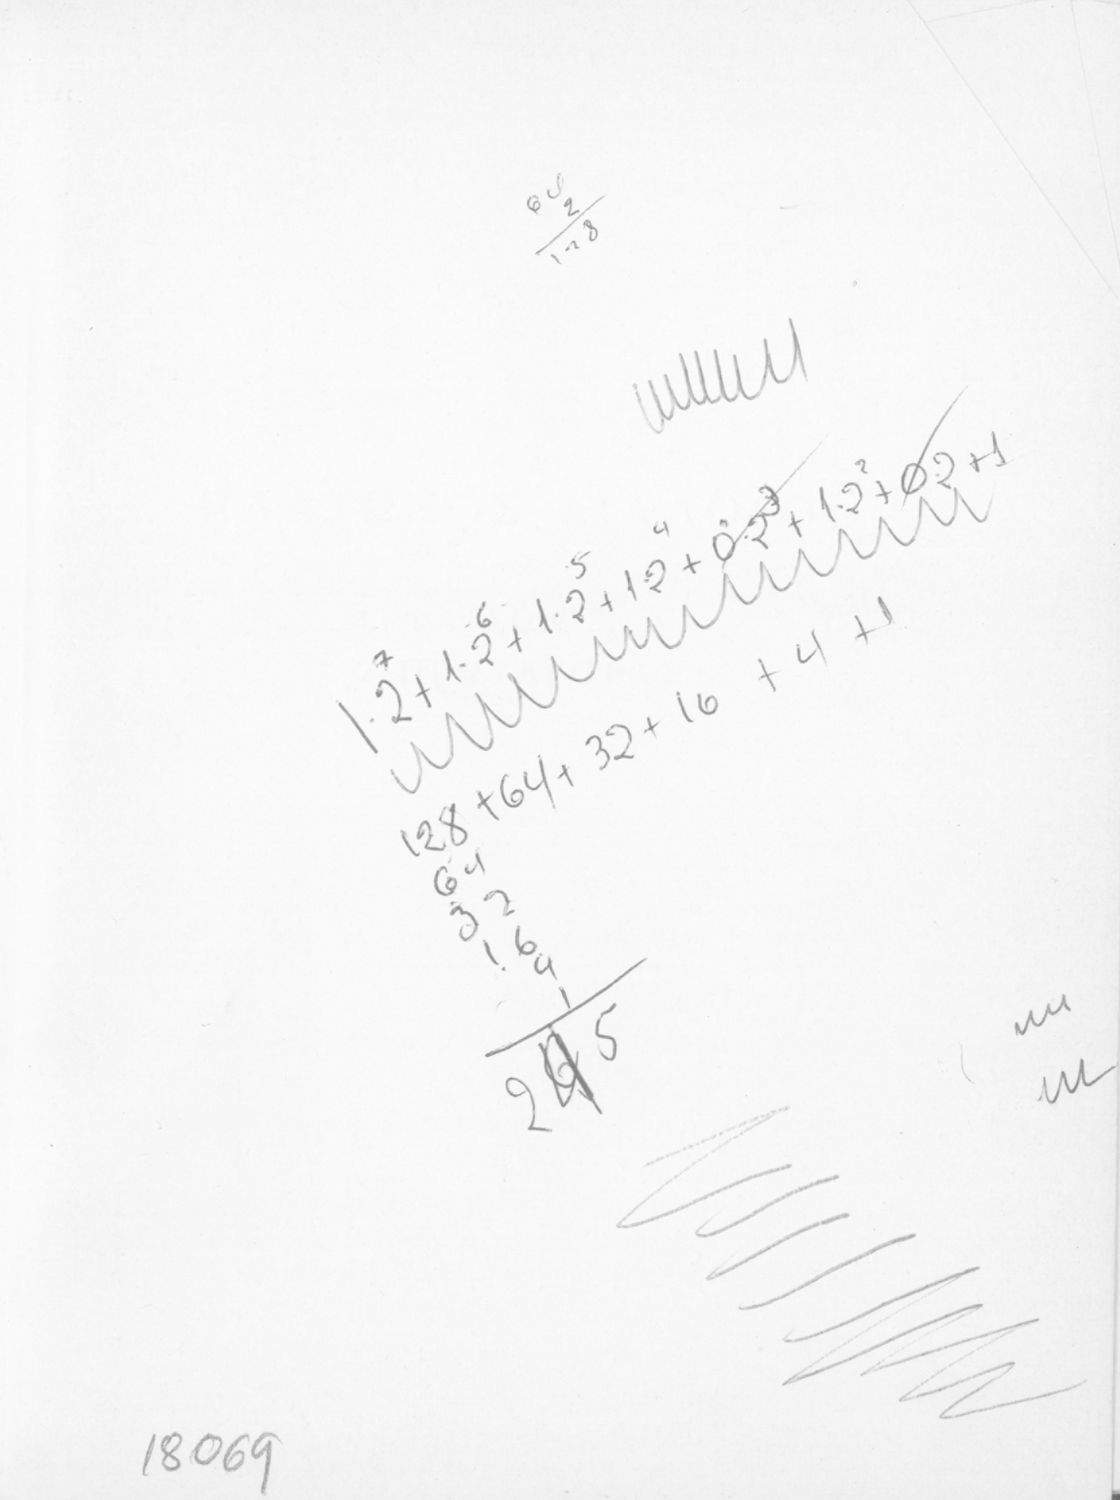 64
2
128
1·2⁷+1·2⁶+1·2⁵+1·2⁴+0·2³+1·2²+0·2+1
128+64+32+16 +4 +1
64
32
16
4
1
245
18069